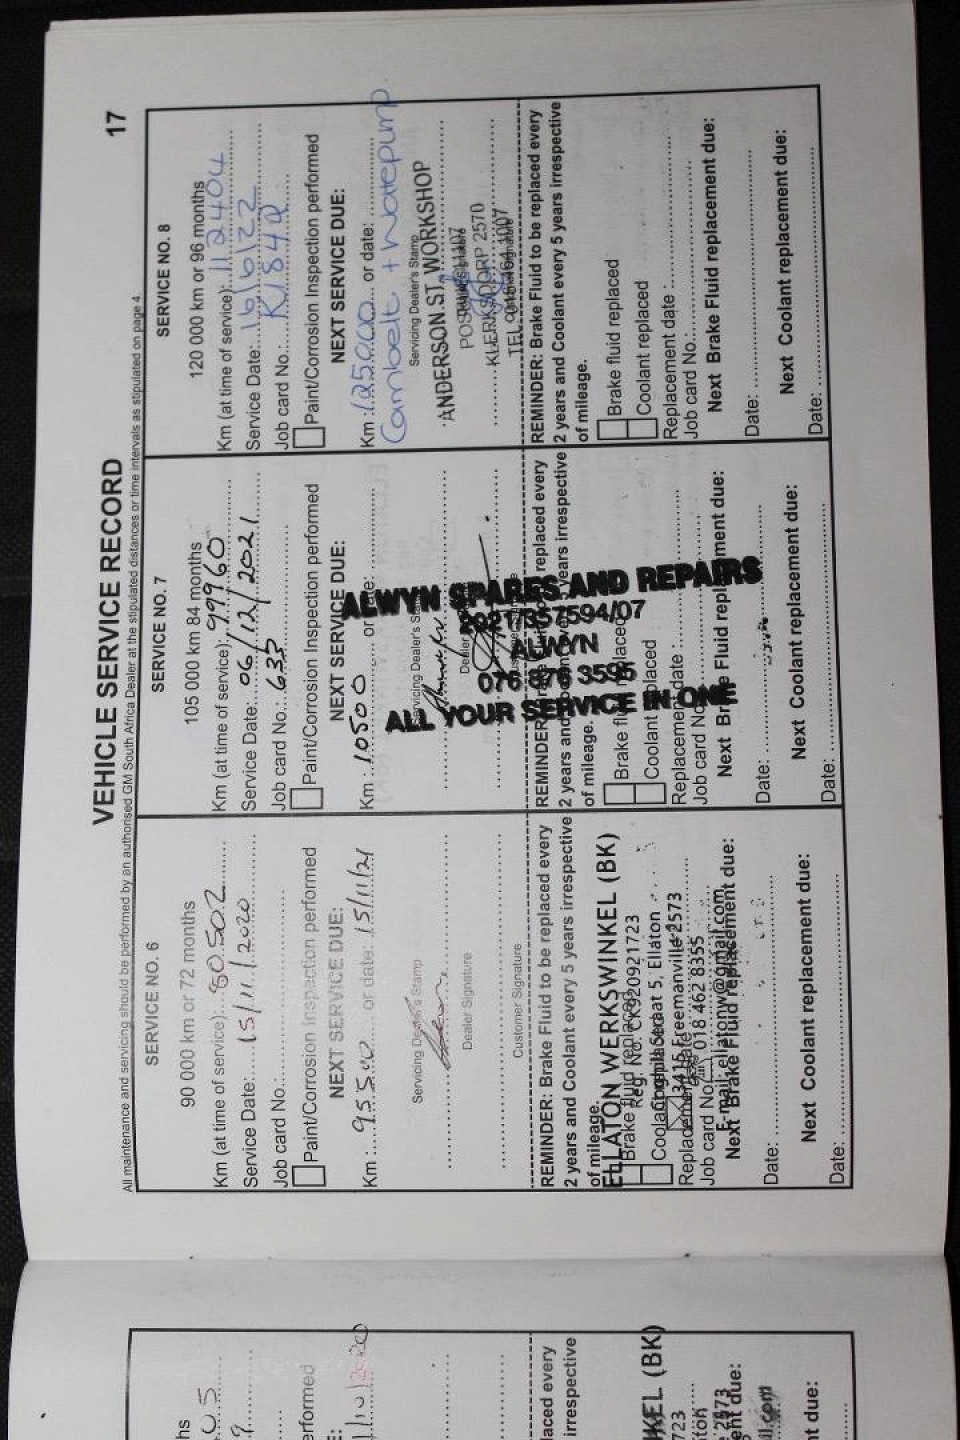 VEHICLE SERVICE RECORD
17
All maintenance and servicing should be performed by an authorised GM South Africa Dealer at the stipulated distances or time intervals as stipulated on page 4.
SERVICE NO. 6
90 000 km or 72 months
Km (at time of service): 80502
Service Date: 15/11/2020
Job card No.:
Paint/Corrosion Inspection performed
NEXT SERVICE DUE:
Km : 95500 or date: 15/11/21
Servicing Dealer's Stamp
Dealer Signature
Customer Signature
REMINDER: Brake Fluid to be replaced every
2 years and Coolant every 5 years irrespective
of mileage.
ELLATON WERKSWINKEL (BK)
Brake fluid replaced
Reg. No. CK920921723
Coolant replaced
Straat 5, Ellaton
3415 Freemanville 2573
Replacement date :
Job card No.:
018 462 8355
E-mail: ellatonw@gmail.com
Next Brake Fluid replacement due:
Date:
Next Coolant replacement due:
Date:
SERVICE NO. 7
105 000 km 84 months
Km (at time of service): 99960
Service Date: 06/12/2021
Job card No.: 633
Paint/Corrosion Inspection performed
NEXT SERVICE DUE:
Km : 10500 or date:
Servicing Dealer's Stamp
ALWYN SPARES AND REPAIRS
2021/357594/07
ALWYN
ALL YOUR SERVICE IN ONE
REMINDER: replaced every
2 years and years irrespective
of mileage.
Brake fluid replaced
Coolant replaced
Replacement date :
Job card No.:
Next Brake Fluid replacement due:
Date:
Next Coolant replacement due:
Date:
SERVICE NO. 8
120 000 km or 96 months
Km (at time of service): 112404
Service Date: 16/6/22
Job card No.: K1849
Paint/Corrosion Inspection performed
NEXT SERVICE DUE:
Km : 125000 or date:
Cambelt + waterpump
Servicing Dealer's Stamp
ANDERSON ST. WORKSHOP
KLERKSDORP 2570
TEL 018 464 1007
REMINDER: Brake Fluid to be replaced every
2 years and Coolant every 5 years irrespective
of mileage.
Brake fluid replaced
Coolant replaced
Replacement date :
Job card No.:
Next Brake Fluid replacement due:
Date:
Next Coolant replacement due:
Date: